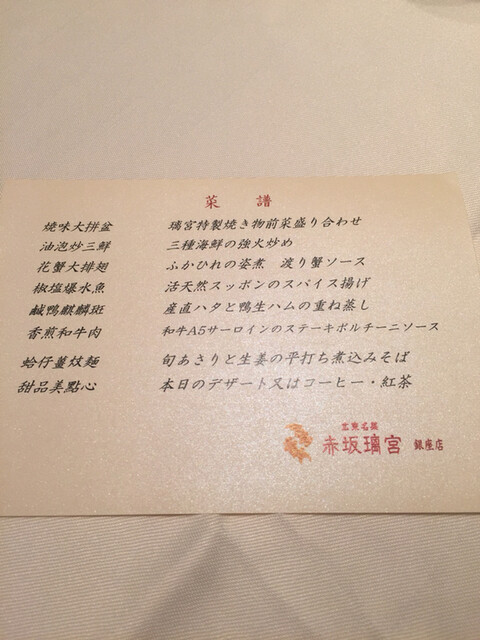 菜 譜
燒味大拼盆 璃宮特製焼き物前菜盛り合わせ
油泡炒三鮮 三種海鮮の強火炒め
花蟹大排翅 ふかひれの姿煮 渡り蟹ソース
椒塩爆水魚 活天然スッポンのスパイス揚げ
鹹鴨麒麟斑 産直ハタと鴨生ハムの重ね蒸し
香煎和牛肉 和牛A5サーロインのステーキポルチーニソース
蛤仔薑炆麵 旬あさりと生姜の平打ち煮込みそば
甜品美點心 本日のデザート又はコーヒー・紅茶
赤坂璃宮 銀座店